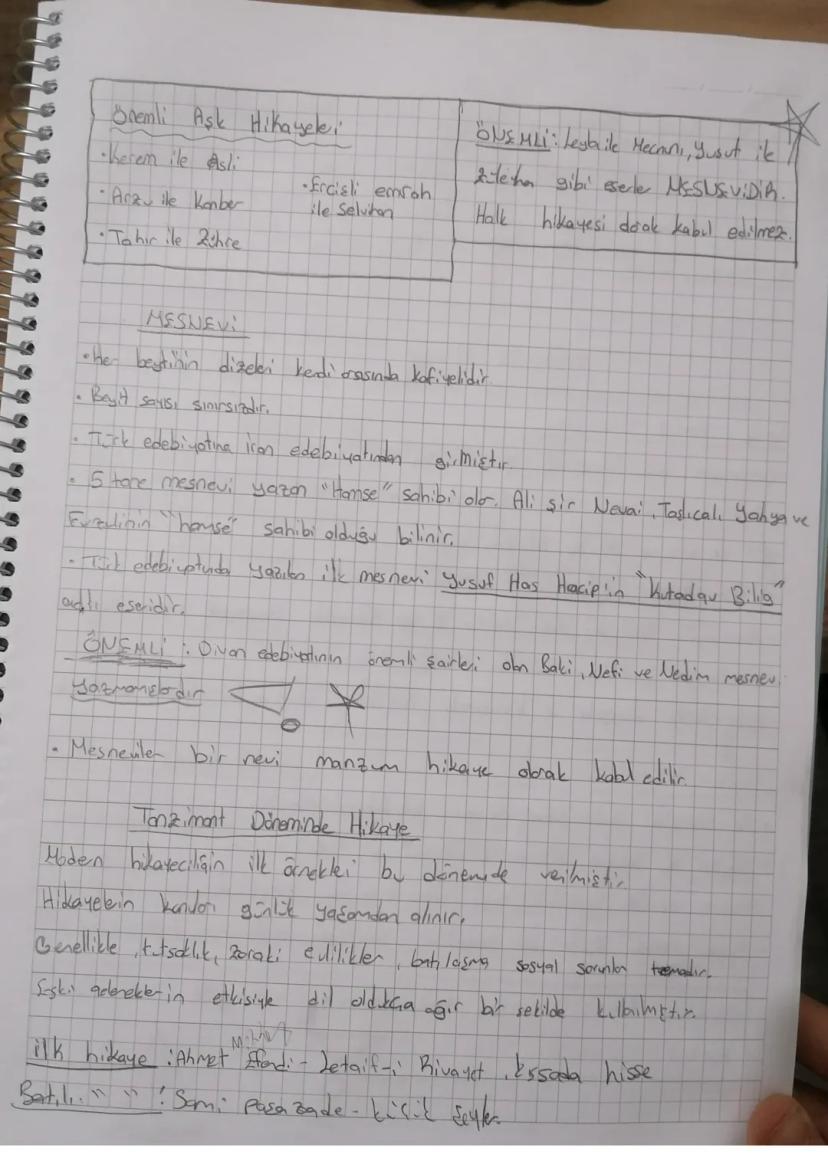 Önemli Aşk Hikayeleri
• Kerem ile Aslı
• Arzu ile Kamber
• Tahir ile Zühre
• Ercişli emrah
ile Selvihan
ÖNEMLİ: Leyla ile Mecnun, Yusuf ile
Züleyha gibi eserler MESNEVİDİR.
Halk hikayesi olarak kabul edilmez.
MESNEVİ
• Her beytinin dizeleri kendi arasında kafiyelidir.
• Beyit sayısı sınırsızdır.
• Türk edebiyatına iran edebiyatından girmiştir.
• 5 tane mesnevi yazan "Hamse" sahibi olur. Ali şir Nevai, Taşlıcalı Yahya ve
Fuzulinin "hamse" sahibi olduğu bilinir.
• Türk edebiyatında yazılan ilk mesnevi Yusuf Has Hacip'in "Kutadgu Bilig"
adlı eseridir.
ÖNEMLİ: Divan edebiyatının önemli şairleri olan Baki, Nefi ve Nedim mesnevi
yazmamışlardır
• Mesneviler bir nevi manzum hikaye olarak kabul edilir.
Tanzimant Döneminde Hikaye
Modern hikayeciliğin ilk örnekleri bu dönemde verilmiştir.
Hikayelerin konuları günlük yaşamdan alınır.
Genellikle, tutsaklık, zoraki evlilikler, batılılaşma sosyal sorunlar temadır.
Eski geleneklerin etkisiyle dil oldukça ağır bir şekilde kullanılmıştır.
Mithat
ilk hikaye: Ahmet Efendi - Letaif-i Rivayet, Kıssadan hisse
Batılı. " " : Sami paşa zade - küçük şeyler